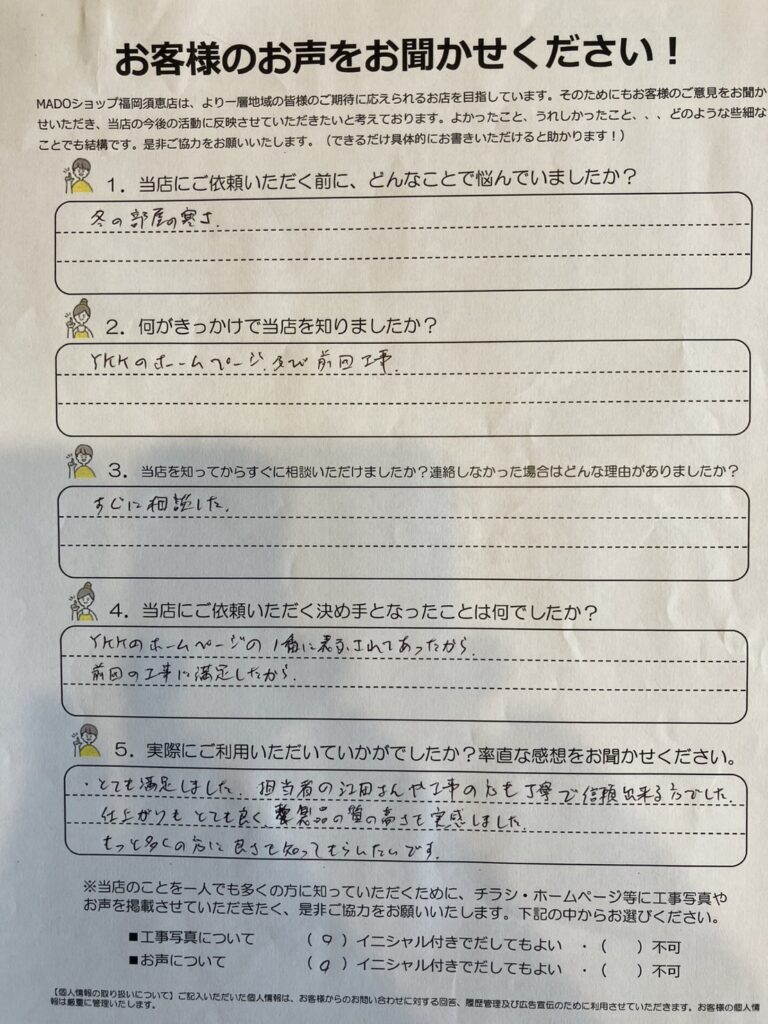 お客様のお声をお聞かせください！
MADOショップ福岡須恵店は、より一層地域の皆様のご期待に応えられるお店を目指しています。そのためにもお客様のご意見をお聞か
せいただき、当店の今後の活動に反映させていただきたいと考えております。よかったこと、うれしかったこと、、、どのような些細な
ことでも結構です。是非ご協力をお願いいたします。（できるだけ具体的にお書きいただけると助かります！）
1．当店にご依頼いただく前に、どんなことで悩んでいましたか？
冬の部屋の寒さ.
2．何がきっかけで当店を知りましたか？
YKKのホームページ.及び前回工事.
3．当店を知ってからすぐに相談いただけましたか？連絡しなかった場合はどんな理由がありましたか？
すぐに相談した.
4．当店にご依頼いただく決め手となったことは何でしたか？
YKKのホームページの1番に表示されてあったから.
前回の工事に満足したから.
5．実際にご利用いただいていかがでしたか？率直な感想をお聞かせください。
・とても満足しました.担当者の江田さんや工事の方も丁寧で信頼出来る方でした.
仕上がりもとても良く、製品の質の高さを実感しました.
もっと多くの方に良さを知ってもらいたいです.
※当店のことを一人でも多くの方に知っていただくために、チラシ・ホームページ等に工事写真や
お声を掲載させていただきたく、是非ご協力をお願いいたします。下記の中からお選びください。
■工事写真について （○）イニシャル付きでだしてもよい ・（ ）不可
■お声について （○）イニシャル付きでだしてもよい ・（ ）不可
【個人情報の取り扱いについて】ご記入いただいた個人情報は、お客様からのお問い合わせに対する回答、履歴管理及び広告宣伝のために利用させていただきます。お客様の個人情
報は厳重に管理いたします。